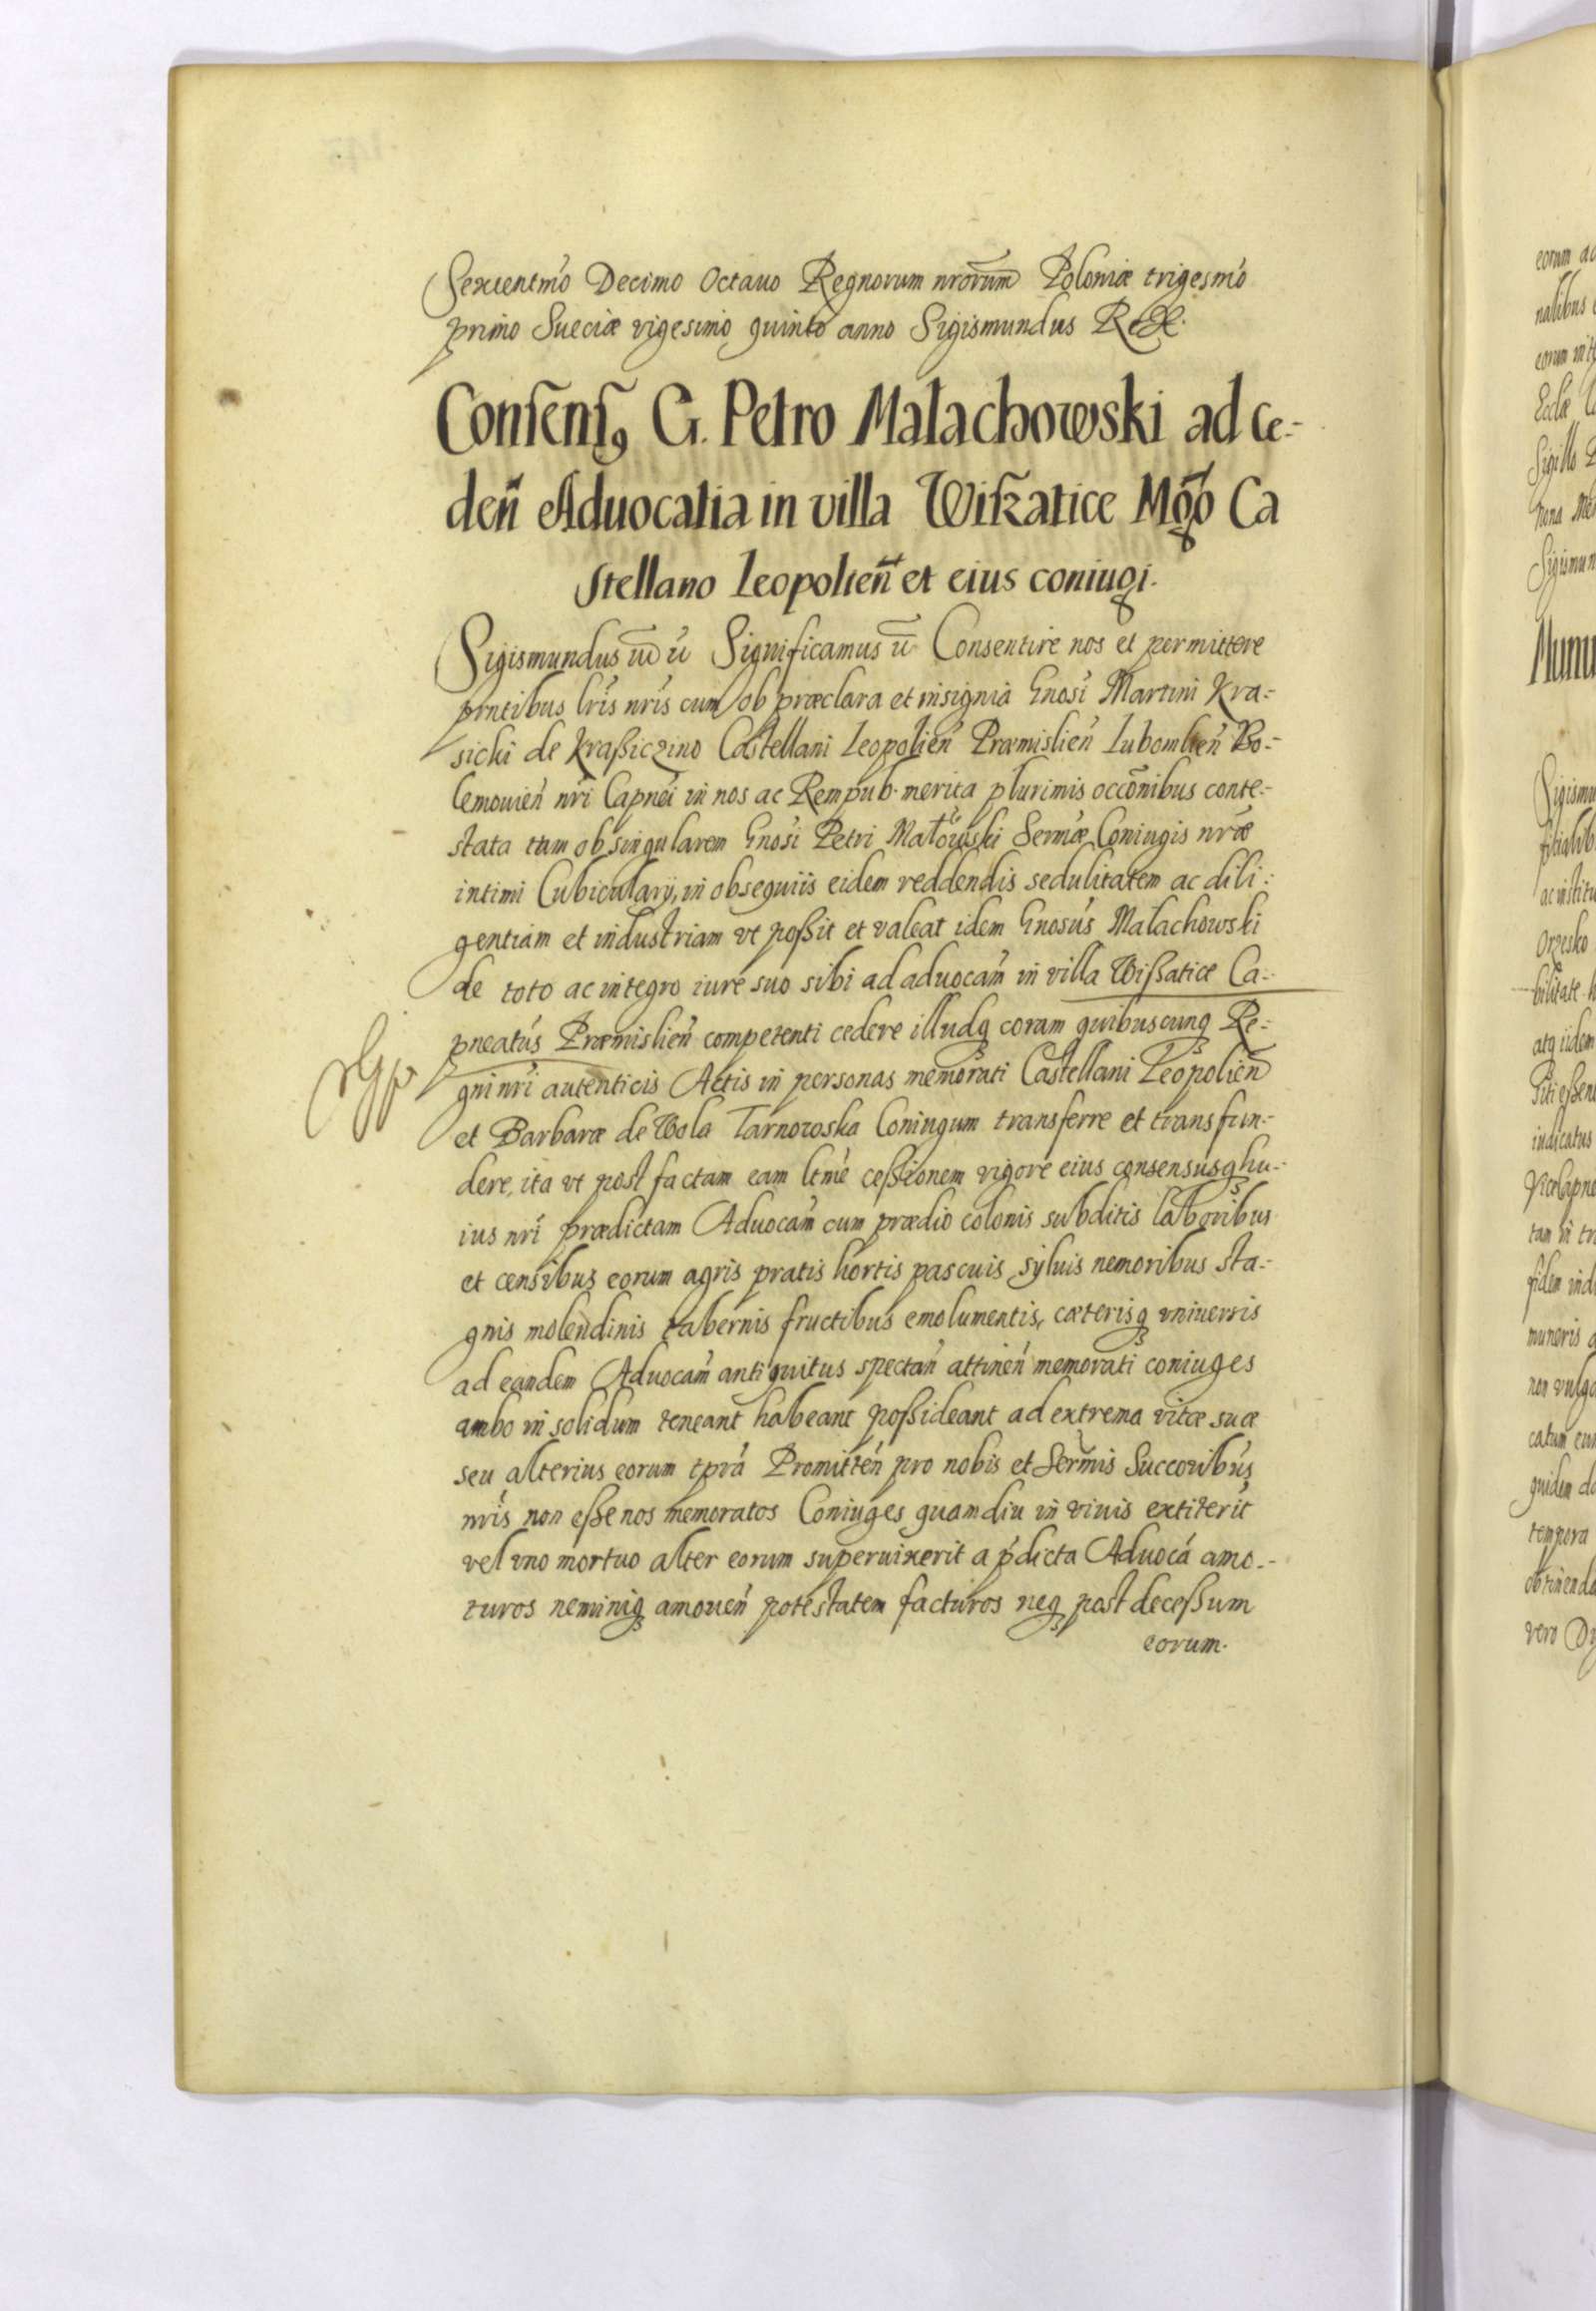 Sexcentmo Decimo Octauo Regnorum nrorum Poloniæ trigesmo
primo Sueciæ vigesimo quinto anno Sigismundus Rex.
Consens9 G. Petro Malachowski ad ce=
den̄ Aduocatia in villa Wiszatice Mgco Ca
stellano Leopolien̄ et eius coniugi.
Sigismundus Significamus Consentire nos et permittere
pntibus lris nris cum ob præclara et insignia Gnosi Martini Kra=
sicki de Kraßiczino Castellani Leopolien Præmislien Lubomlien Bo=
lemouien nri Capnei in nos ac Rempub. merita plurimis occonibus conte=
stata tum ob singularem Gnosi Petri Małowski Sermæ Coniugis nræ
intimi Cubicularij, in obsequiis eidem reddendis sedulitatem ac dili=
gentiam et industriam vt poßit et valeat idem Gnosus Malachowski
de toto ac integro iure suo sibi ad aduocam in villa Wißatice Ca=
pneatus Præmislien competenti cedere illudq coram quibuscunq Re=
gni nri autenticis Actis in personas memorati Castellani Leopolien
et Barbaræ de Wola Tarnowska Coniugum transferre et transfun=
dere, ita vt post factam eam ltme ceßionem vigore eius consensusq hu=
ius nri prædictam Aduocam cum prædio colonis subditis laboribus
et censibus eorum agris pratis hortis pascuis syluis nemoribus sta=
gnis molendinis tabernis fructibus emolumentis, cæterisq vniuersis
ad eandem Aduocam antiquitus spectan attinen memorati coniuges
ambo in solidum teneant habeant poßideant ad extrema vitæ suæ
seu alterius eorum tpra Promitten pro nobis et Sermis Succoribus
nris non eße nos memoratos Coniuges quamdiu in viuis extiterit
vel vno mortuo alter eorum superuixerit a pdicta Aduoca amo=
turos neminiq amouen potestatem facturos neq post deceßum
eorum.